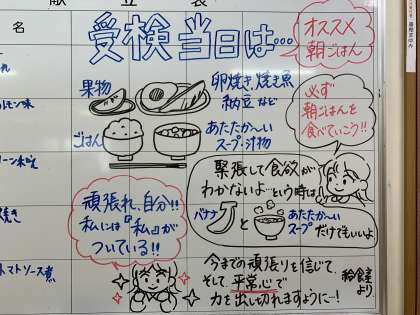 献立表
名
受検当日は…
オススメ
朝ごはん
果物
卵焼き、焼き魚
納豆 など
ごはん
あたたか〜い
スープ・汁物
必ず
朝ごはんを
食べていこう!!
緊張して食欲が
わかないよ…という時は
バナナ
と
あたたか〜い
スープ
だけでもいいよ
頑張れ、自分!!
私には『私』が
ついている!!
今までの頑張りを信じて、
そして、平常心で
力を出し切れますように…!
給食室
より
レモン味
焼き
トマトソース煮